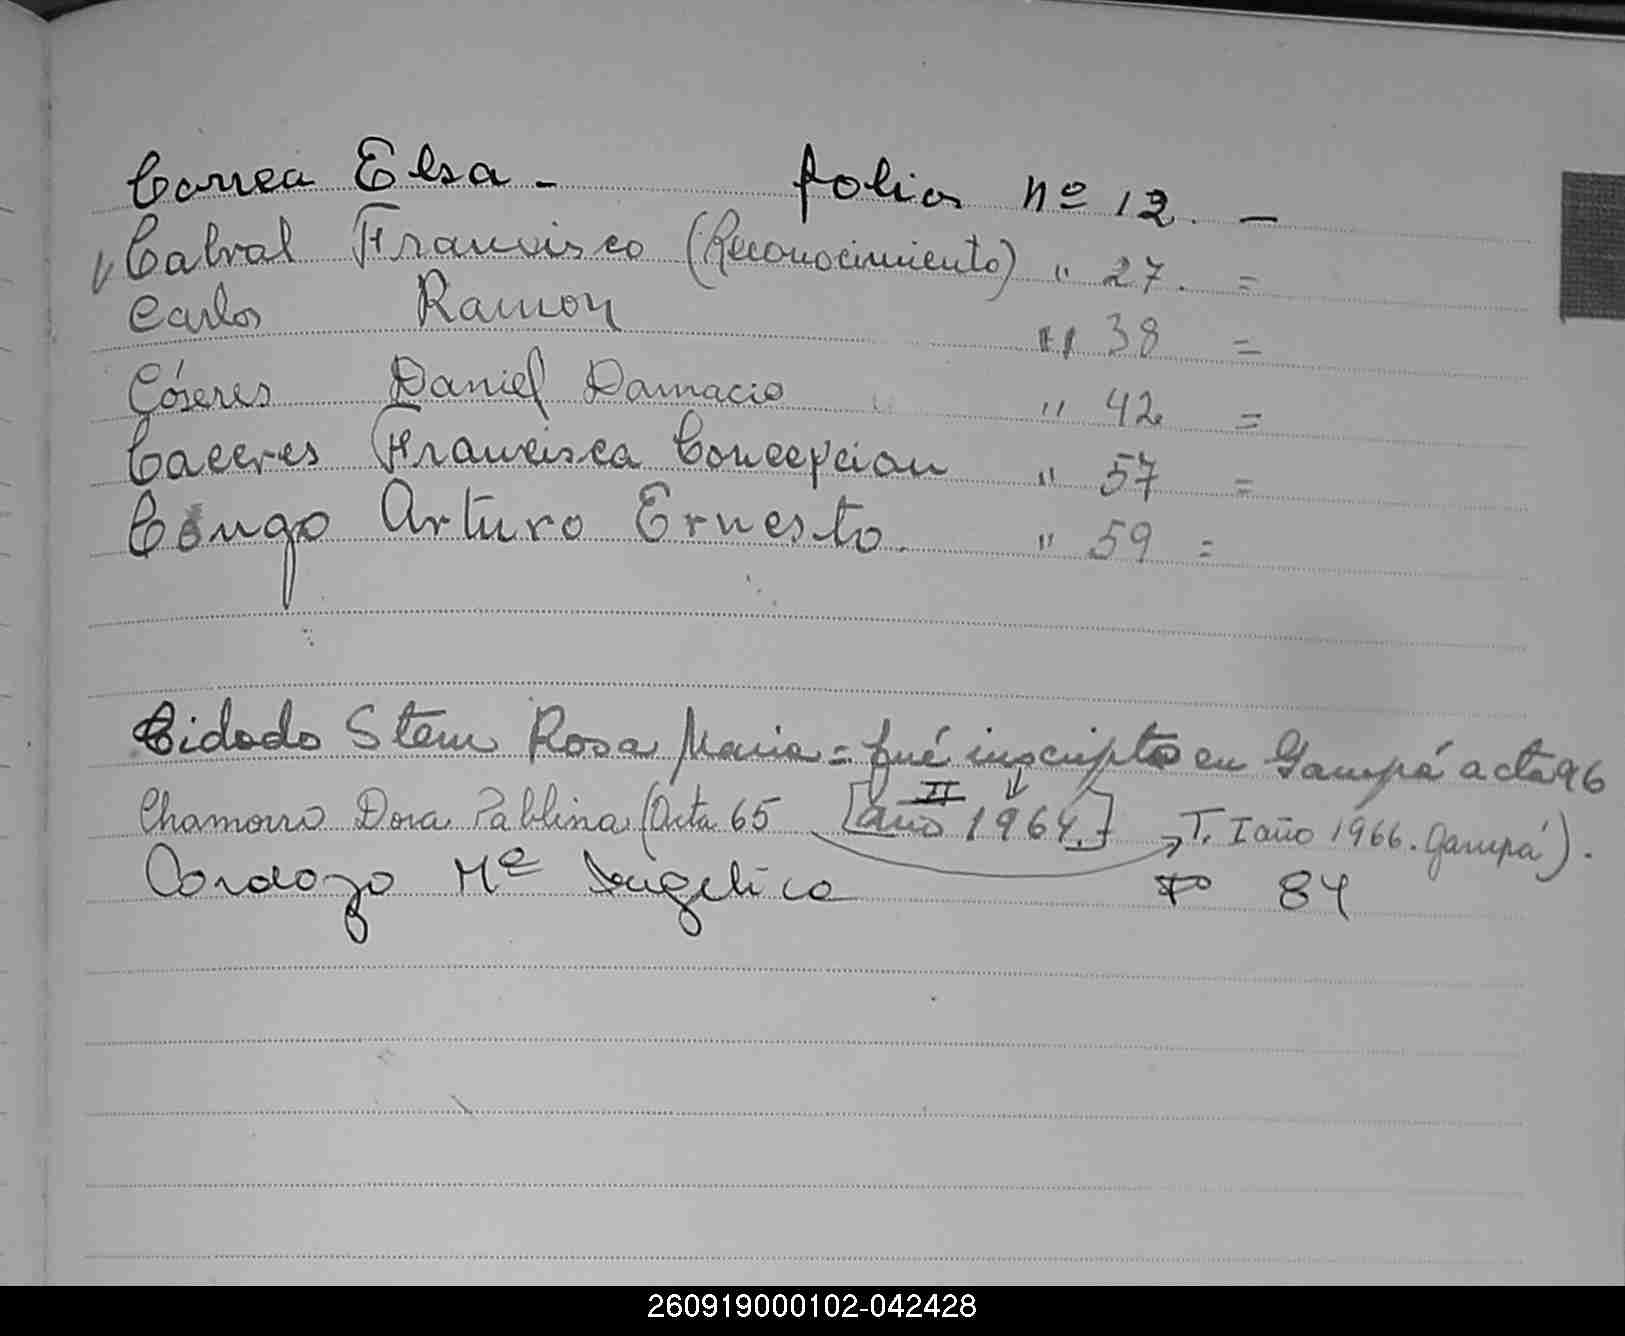 Correa Elsa - folios nº 12. -
Cabral Francisco (Reconocimiento) " 27. =
Carlos Ramon " 38 =
Cáseres Daniel Damacio " 42 =
Caceres Francisca Concepcion " 57 =
Congo Arturo Ernesto. " 59 =
Cidado Stem Rosa Maria = fué inscripto en Garupá acta 96
II
Chamorro Dora Pablina (Acta 65 [año 1964.] T. I año 1966. Garupá).
Cardozo Mª Angelica Fº 84
260919000102-042428